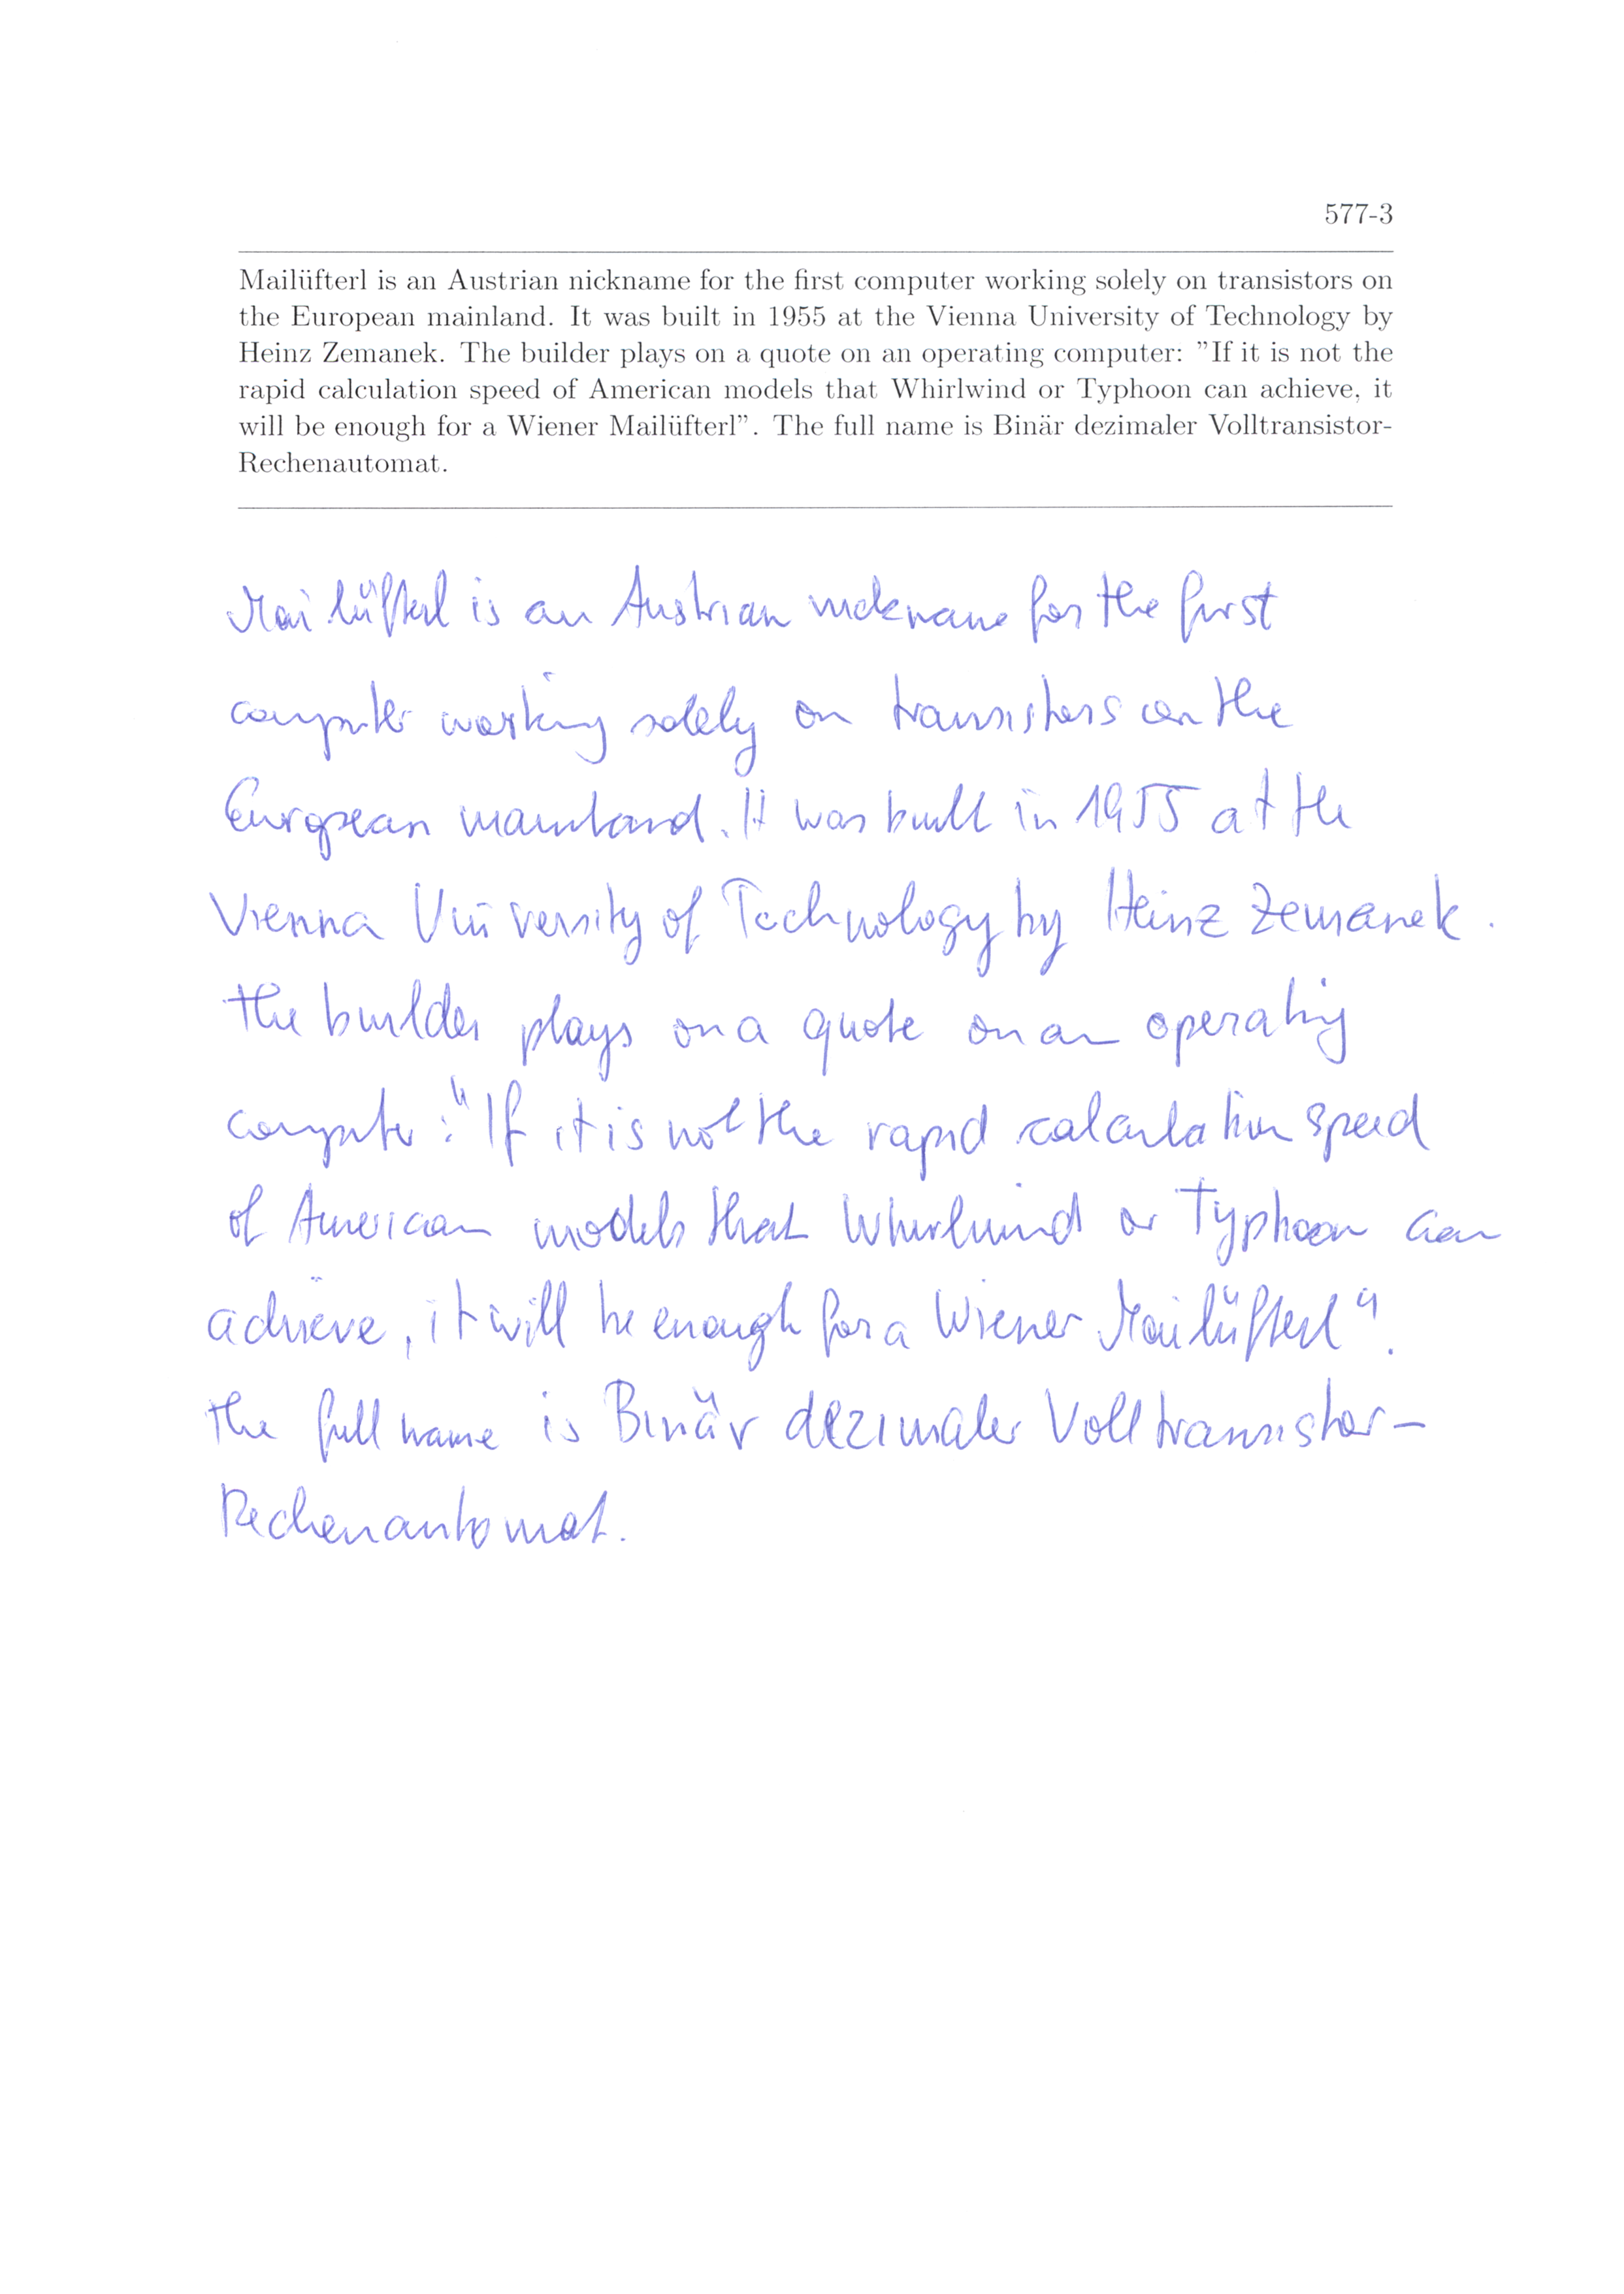 577-3
Mailüfterl is an Austrian nickname for the first computer working solely on transistors on
the European mainland. It was built in 1955 at the Vienna University of Technology by
Heinz Zemanek. The builder plays on a quote on an operating computer: ”If it is not the
rapid calculation speed of American models that Whirlwind or Typhoon can achieve, it
will be enough for a Wiener Mailüfterl”. The full name is Binär dezimaler Volltransistor-
Rechenautomat.
Mailüfterl is an Austrian nickname for the first
computer working solely on transistors on the
European mainland. It was built in 1955 at the
Vienna University of Technology by Heinz Zemanek.
the builder plays on a quote on an operating
computer: "If it is not the rapid calculation speed
of American models that Whirlwind or Typhoon can
achieve, it will be enough for a Wiener Mailüfterl".
the full name is Binär dezimaler Volltransistor-
Rechenautomat.